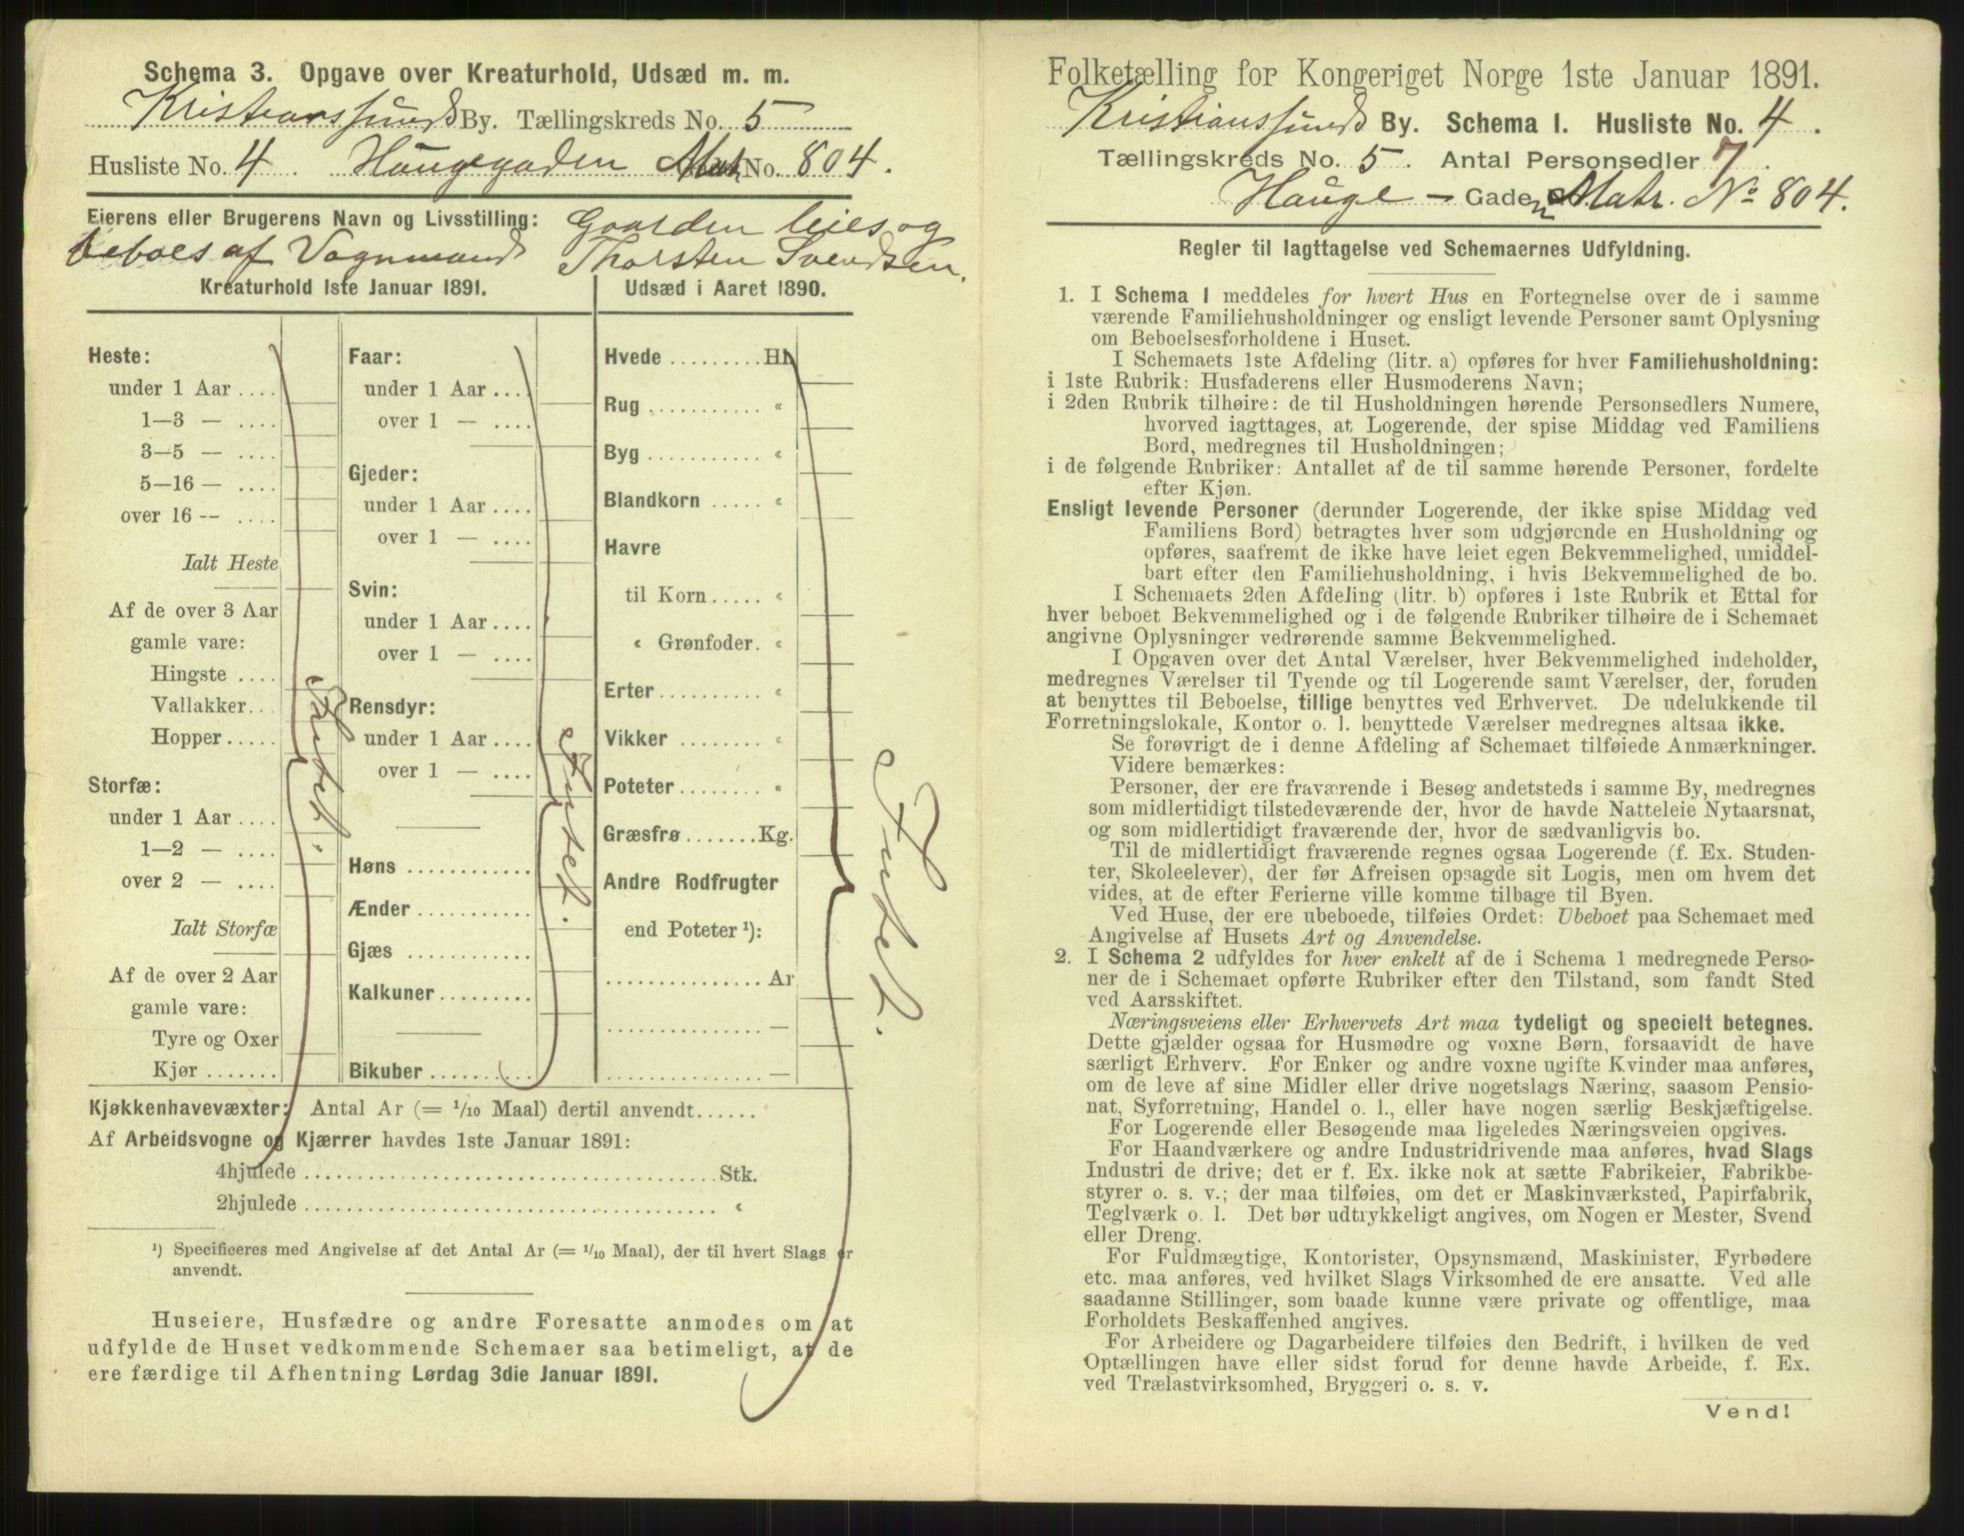 Schema 3. Opgave over Kreaturhold, Udsæd m. m.
Kristianssunds By. Tællingskreds No. 5
Husliste No. 4. Haugegaden Mat No. 804.
Eierens eller Brugerens Navn og Livsstilling: Gaarden leies og
beboes af Vognmand Thorsten Svendsen.
Kreaturhold 1ste Januar 1891.
Heste:
under 1 Aar ....
1—3 — ....
3—5 — ....
5—16 — ....
over 16 — ....
Ialt Heste
Af de over 3 Aar
gamle vare:
Hingste ....
Vallakker...
Hopper .....
Storfæ:
under 1 Aar ....
1—2 — ....
over 2 — ....
Ialt Storfæ
Af de over 2 Aar
gamle vare:
Tyre og Oxer
Kjør .......
Intet.
Faar:
under 1 Aar ....
over 1 — ....
Gjeder:
under 1 Aar ....
over 1 — ....
Svin:
under 1 Aar ....
over 1 — ....
Rensdyr:
under 1 Aar ....
over 1 — ....
Høns ............
Ænder ...........
Gjæs ............
Kalkuner.........
Bikuber ..........
Intet.
Udsæd i Aaret 1890.
Hvede ......... Hl.
Rug ........... «
Byg ........... «
Blandkorn ..... «
Havre
til Korn..... «
« Grønfoder. «
Erter ......... «
Vikker ........ «
Poteter........ «
Græsfrø ....... Kg.
Andre Rodfrugter
end Poteter ¹):
............... Ar
............... —
............... —
Intet.
Kjøkkenhavevæxter: Antal Ar (= 1/10 Maal) dertil anvendt......
Af Arbeidsvogne og Kjærrer havdes 1ste Januar 1891:
4hjulede ........................................ Stk.
2hjulede ........................................ «
¹) Specificeres med Angivelse af det Antal Ar (= 1/10 Maal), der til hvert Slags er
anvendt.
Huseiere, Husfædre og andre Foresatte anmodes om at
udfylde de Huset vedkommende Schemaer saa betimeligt, at de
ere færdige til Afhentning Lørdag 3die Januar 1891.
Folketælling for Kongeriget Norge 1ste Januar 1891.
Kristianssunds By. Schema I. Husliste No. 4.
Tællingskreds No. 5. Antal Personsedler 7.
Hauge - Gaden Matr. No 804.
Regler til Iagttagelse ved Schemaernes Udfyldning.
1. I Schema 1 meddeles for hvert Hus en Fortegnelse over de i samme
værende Familiehusholdninger og ensligt levende Personer samt Oplysning
om Beboelsesforholdene i Huset.
I Schemaets 1ste Afdeling (litr. a) opføres for hver Familiehusholdning:
i 1ste Rubrik: Husfaderens eller Husmoderens Navn;
i 2den Rubrik tilhøire: de til Husholdningen hørende Personsedlers Numere,
hvorved iagttages, at Logerende, der spise Middag ved Familiens
Bord, medregnes til Husholdningen;
i de følgende Rubriker: Antallet af de til samme hørende Personer, fordelte
efter Kjøn.
Ensligt levende Personer (derunder Logerende, der ikke spise Middag ved
Familiens Bord) betragtes hver som udgjørende en Husholdning og
opføres, saafremt de ikke have leiet egen Bekvemmelighed, umiddel-
bart efter den Familiehusholdning, i hvis Bekvemmelighed de bo.
I Schemaets 2den Afdeling (litr. b) opføres i 1ste Rubrik et Ettal for
hver beboet Bekvemmelighed og i de følgende Rubriker tilhøire de i Schemaet
angivne Oplysninger vedrørende samme Bekvemmelighed.
I Opgaven over det Antal Værelser, hver Bekvemmelighed indeholder,
medregnes Værelser til Tyende og til Logerende samt Værelser, der, foruden
at benyttes til Beboelse, tillige benyttes ved Erhvervet. De udelukkende til
Forretningslokale, Kontor o. l. benyttede Værelser medregnes altsaa ikke.
Se forøvrigt de i denne Afdeling af Schemaet tilføiede Anmærkninger.
Videre bemærkes:
Personer, der ere fraværende i Besøg andetsteds i samme By, medregnes
som midlertidigt tilstedeværende der, hvor de havde Natteleie Nytaarsnat,
og som midlertidigt fraværende der, hvor de sædvanligvis bo.
Til de midlertidigt fraværende regnes ogsaa Logerende (f. Ex. Studen-
ter, Skoleelever), der før Afreisen opsagde sit Logis, men om hvem det
vides, at de efter Ferierne ville komme tilbage til Byen.
Ved Huse, der ere ubeboede, tilføies Ordet: Ubeboet paa Schemaet med
Angivelse af Husets Art og Anvendelse.
2. I Schema 2 udfyldes for hver enkelt af de i Schema 1 medregnede Perso-
ner de i Schemaet opførte Rubriker efter den Tilstand, som fandt Sted
ved Aarsskiftet.
Næringsveiens eller Erhvervets Art maa tydeligt og specielt betegnes.
Dette gjælder ogsaa for Husmødre og voxne Børn, forsaavidt de have
særligt Erhverv. For Enker og andre voxne ugifte Kvinder maa anføres,
om de leve af sine Midler eller drive nogetslags Næring, saasom Pensio-
nat, Syforretning, Handel o. l., eller have nogen særlig Beskjæftigelse.
For Logerende eller Besøgende maa ligeledes Næringsveien opgives.
For Haandværkere og andre Industridrivende maa anføres, hvad Slags
Industri de drive; det er f. Ex. ikke nok at sætte Fabrikeier, Fabrikbe-
styrer o. s. v.; der maa tilføies, om det er Maskinværksted, Papirfabrik,
Teglværk o. l. Det bør udtrykkeligt angives, om Nogen er Mester, Svend
eller Dreng.
For Fuldmægtige, Kontorister, Opsynsmænd, Maskinister, Fyrbødere
etc. maa anføres, ved hvilket Slags Virksomhed de ere ansatte. Ved alle
saadanne Stillinger, som baade kunne være private og offentlige, maa
Forholdets Beskaffenhed angives.
For Arbeidere og Dagarbeidere tilføies den Bedrift, i hvilken de ved
Optællingen have eller sidst forud for denne havde Arbeide, f. Ex.
ved Trælastvirksomhed, Bryggeri o. s. v.
Vend!